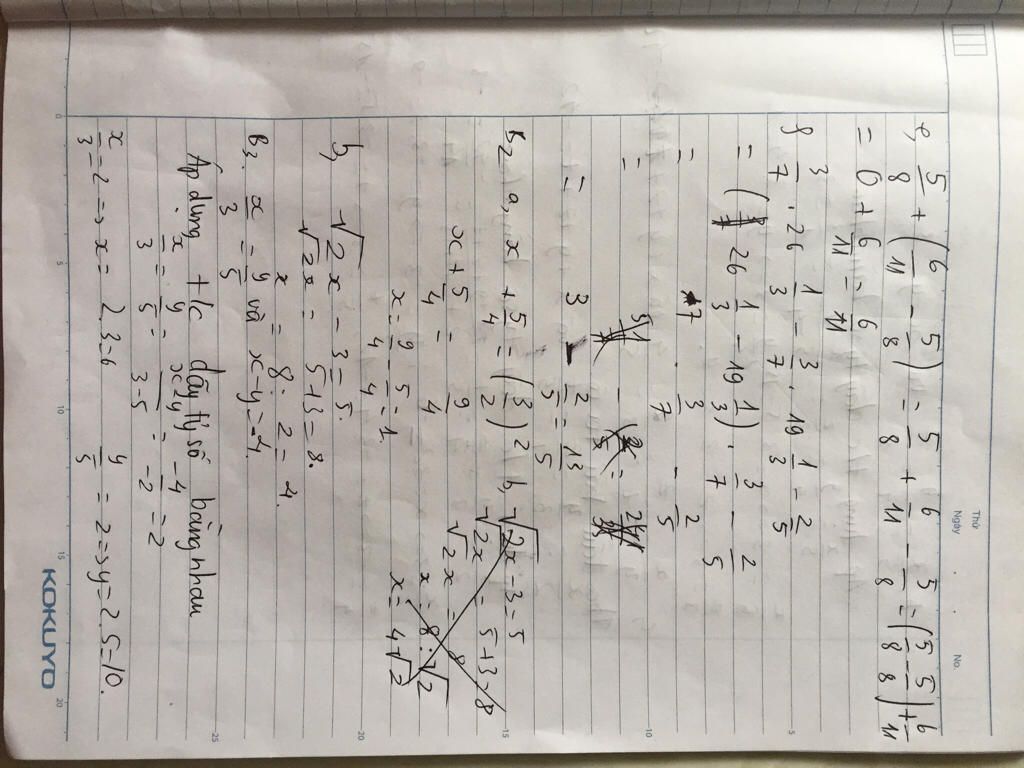 Thứ
Ngày
No.
e, 5/8 + (6/11 - 5/8) = 5/8 + 6/11 - 5/8 = (5/8 - 5/8) + 6/11
= 0 + 6/11 = 6/11
f 3/7 . 26 1/3 - 3/7 . 19 1/3 - 2/5
= (26 1/3 - 19 1/3) . 3/7 - 2/5
= 7 . 3/7 - 2/5
=
= 3 - 2/5 = 13/5
B2 a, x + 5/4 = (3/2)² b, √2x - 3 = 5
√2x = 5+3=8
x + 5/4 = 9/4 √2x = 8
x = 8:√2
x = 9/4 - 5/4 = 1. x = 4√2
b, √2x - 3 = 5.
√2x = 5+3=8.
x = 8 : 2 = 4.
B3. x/3 = y/5 và x-y=-4.
Áp dụng t/c dãy tỷ số bằng nhau
x/3 = y/5 = x-y/3-5 = -4/-2 = 2
x/3 = 2 => x = 2.3=6 y/5 = 2 => y = 2.5=10.
KOKUYO